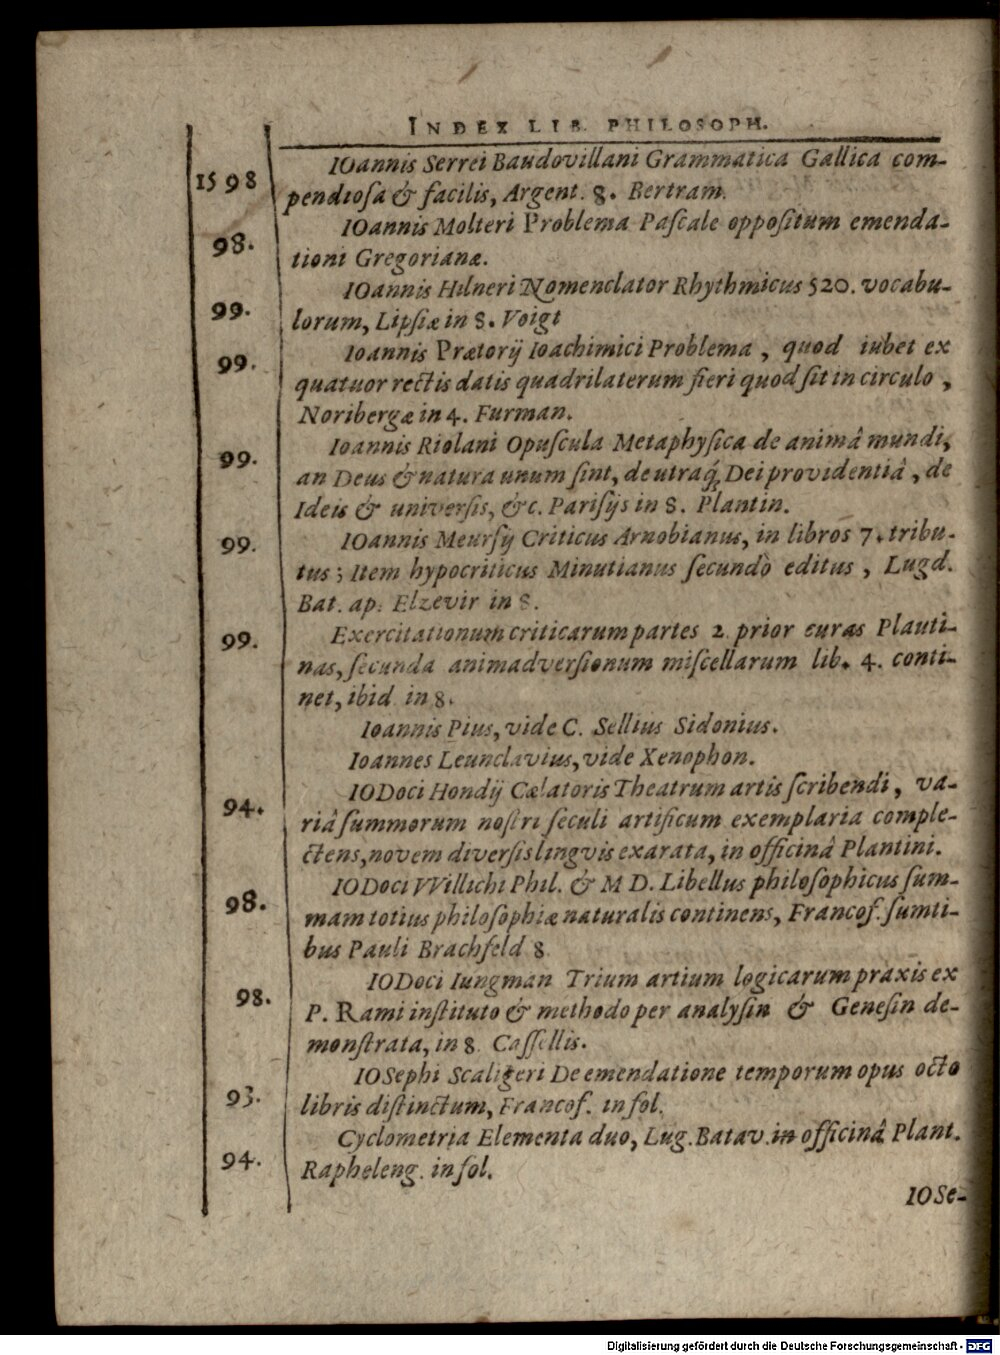 INDEX LIB. PHILOSOPH.
1598 IOannis Serrei Baudovillani Grammatica Gallica com-
pendiosa & facilis, Argent. 8. Bertram.
98. IOannis Molteri Problema Paſcale oppoſitum emenda-
tioni Gregorianæ.
IOannis Hilneri Nomenclator Rhythmicus 520. vocabu-
99. lorum, Lipſiæ in 8. Voigt
99. Ioannis Prætorij Ioachimici Problema, quod iubet ex
quatuor rectis datis quadrilaterum fieri quod ſit in circulo,
Noribergæ in 4. Furman.
99. Ioannis Riolani Opuſcula Metaphyſica de animâ mundi,
an Deus & natura unum ſint, de utraq́; Dei providentiâ, de
Ideis & universis, &c. Pariſijs in 8. Plantin.
99. IOannis Meurſij Criticus Arnobianus, in libros 7. tribu-
tus; Item hypocriticus Minutianus ſecundò editus, Lugd.
Bat. ap. Elzevir in 8.
99. Exercitationum criticarum partes 2. prior curas Plauti-
nas, ſecunda animadverſionum miſcellarum lib. 4. conti-
net, ibid. in 8.
Ioannis Pius, vide C. Sellius Sidonius.
Ioannes Leunclavius, vide Xenophon.
94. IODoci Hondij Cælatoris Theatrum artis ſcribendi, va-
riâ ſummorum noſtri ſeculi artificum exemplaria comple-
ctens, novem diverſis lingvis exarata, in officinâ Plantini.
98. IODoci VVillichi Phil. & M D. Libellus philoſophicus ſum-
mam totius philoſophiæ naturalis continens, Francof. ſumti-
bus Pauli Brachfeld 8.
98. IODoci Iungman Trium artium logicarum praxis ex
P. Rami inſtituto & methodo per analyſin & Geneſin de-
monſtrata, in 8. Caſſellis.
93. IOSephi Scaligeri De emendatione temporum opus octo
libris diſtinctum, Francof. in fol.
94. Cyclometria Elementa duo, Lug. Batav. in officinâ Plant.
Rapheleng. in fol.
IOSe-
Digitalisierung gefördert durch die Deutsche Forschungsgemeinschaft - DFG